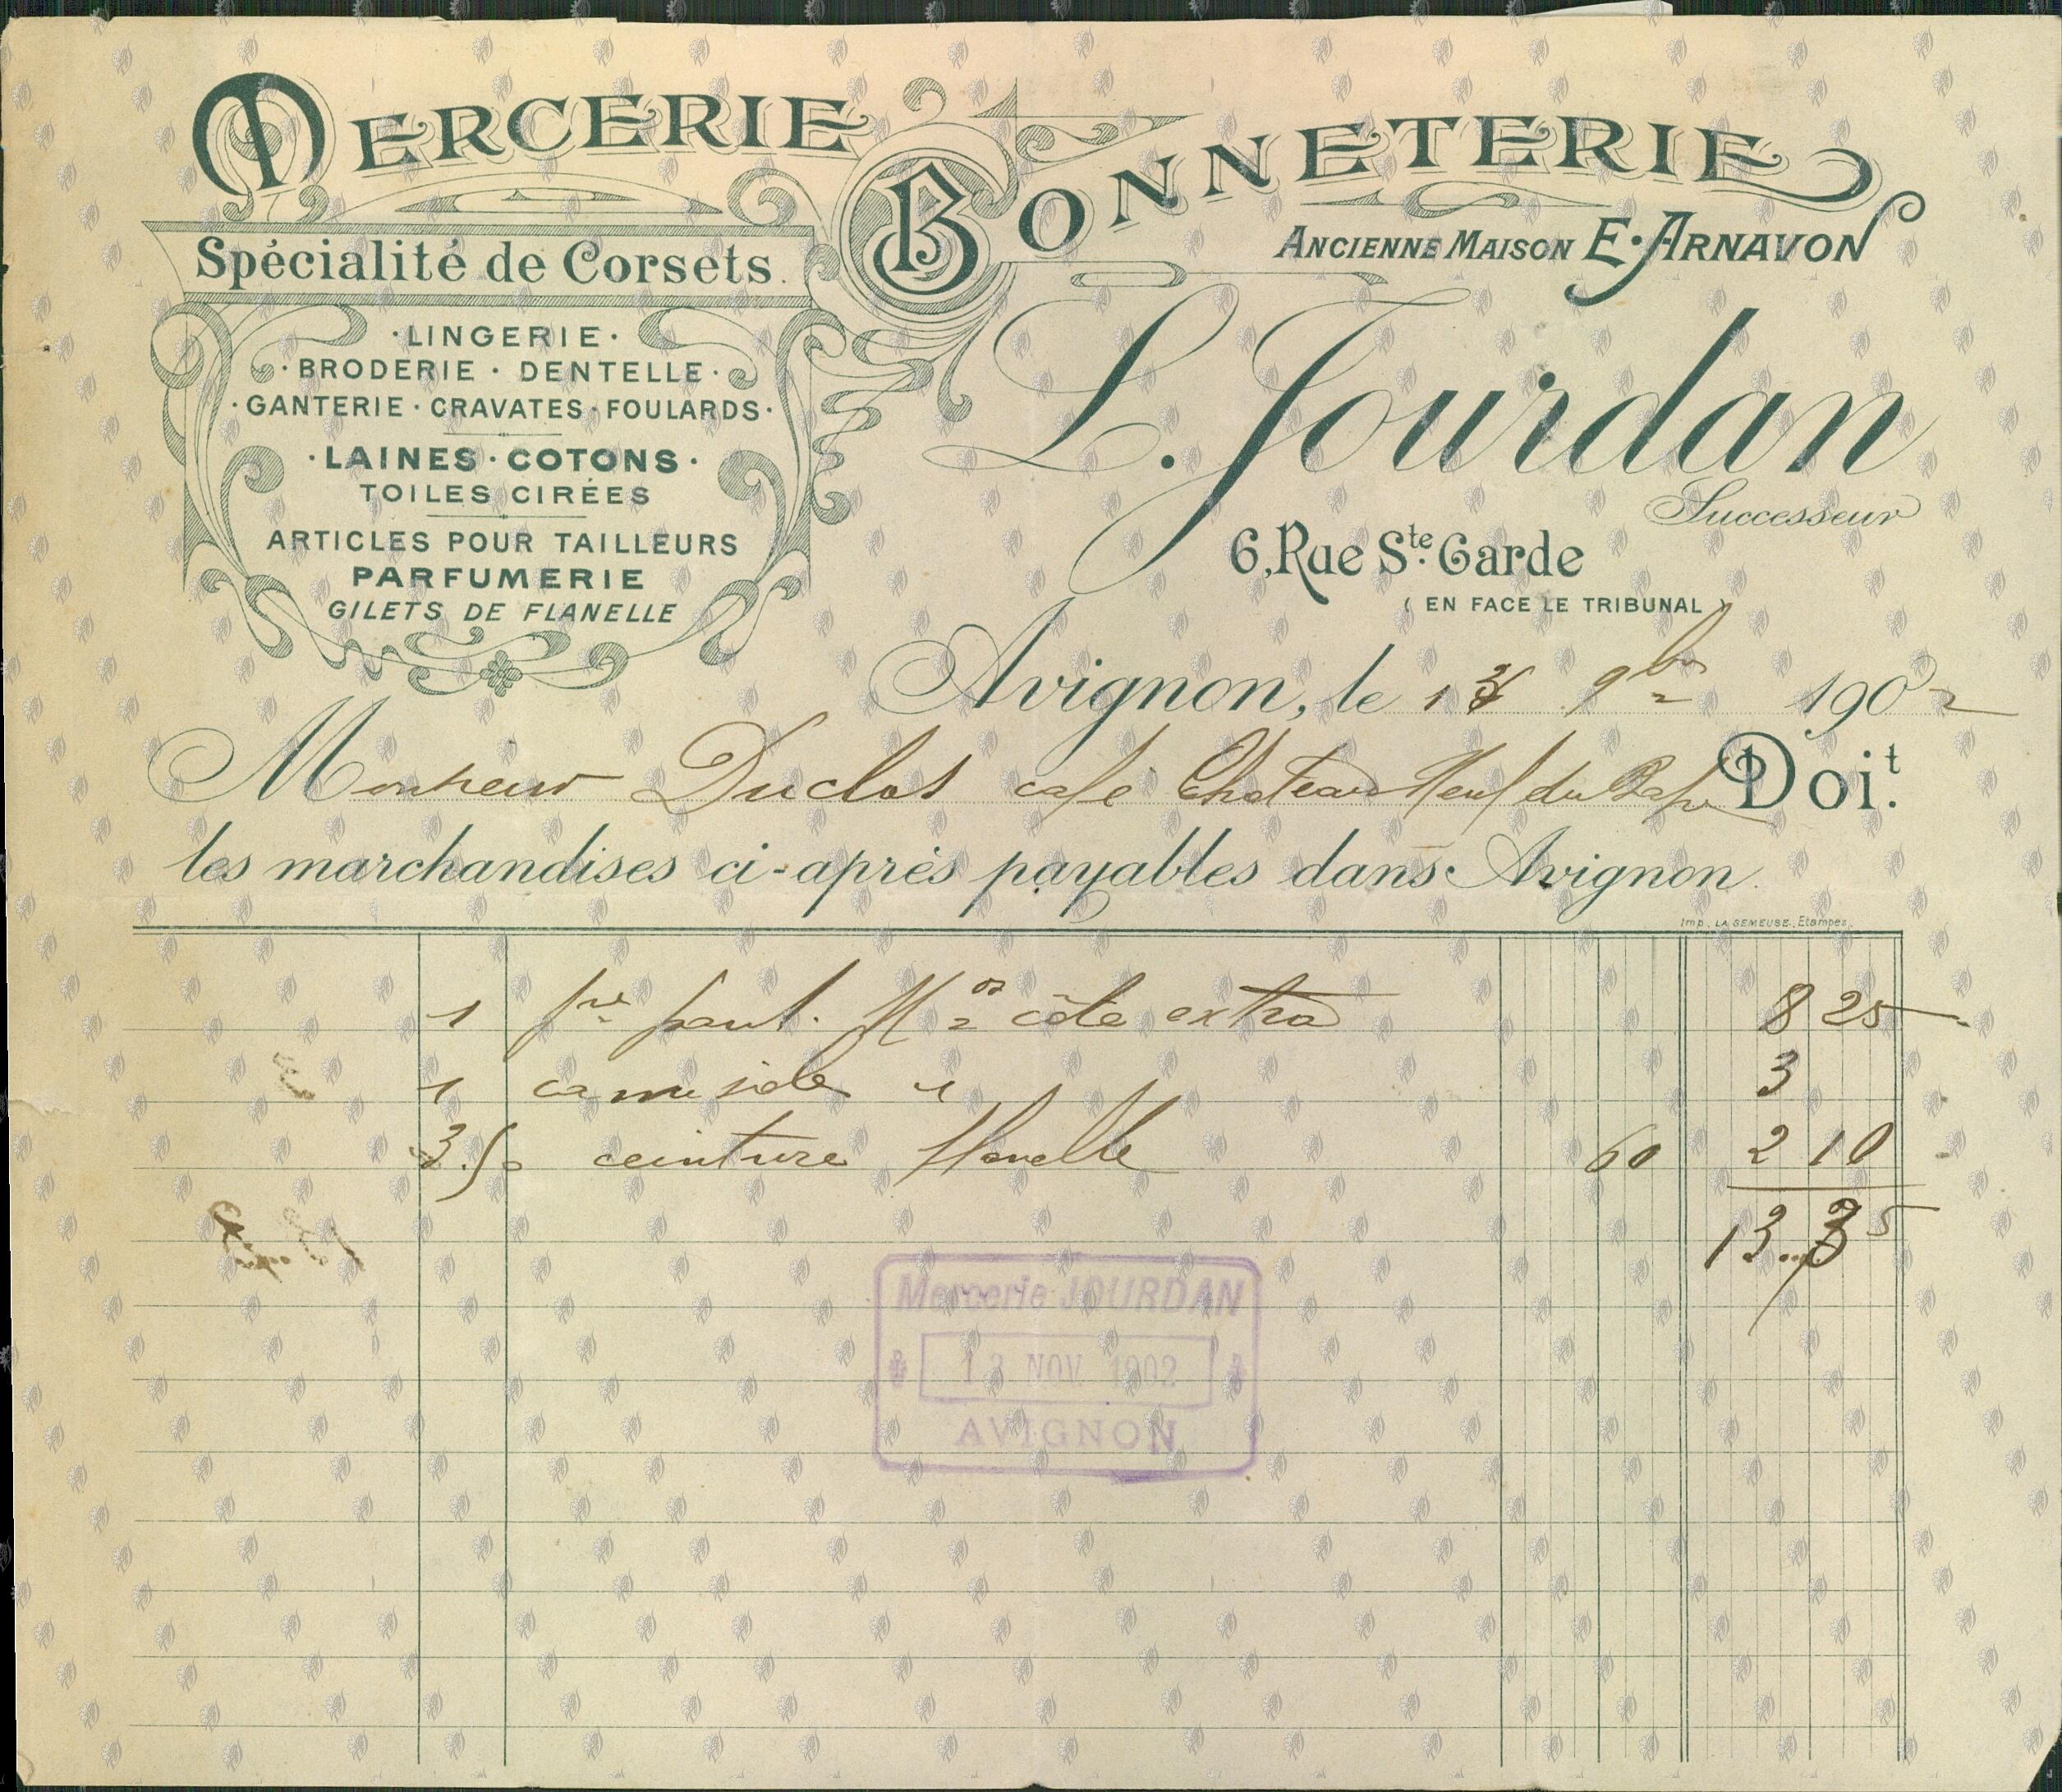 MERCERIE BONNETERIE
ANCIENNE MAISON E. ARNAVON
Spécialité de Corsets.
· LINGERIE ·
· BRODERIE · DENTELLE ·
· GANTERIE · CRAVATES · FOULARDS ·
· LAINES · COTONS ·
TOILES CIRÉES
ARTICLES POUR TAILLEURS
PARFUMERIE
GILETS DE FLANELLE
L. Jourdan
Successeur
6, Rue Ste. Garde
( EN FACE LE TRIBUNAL )
Avignon, le 13 9bre 1902
Monsieur Duclos café Chateau Neuf du Pape Doit.
les marchandises ci-après payables dans Avignon.
Imp. LA SEMEUSE, Etampes.
1 pre pant. côte extra 8 25
1 camisole 3
3.50 ceinture flanelle 60 2 10
13..35
Mercerie JOURDAN
13 NOV. 1902
AVIGNON